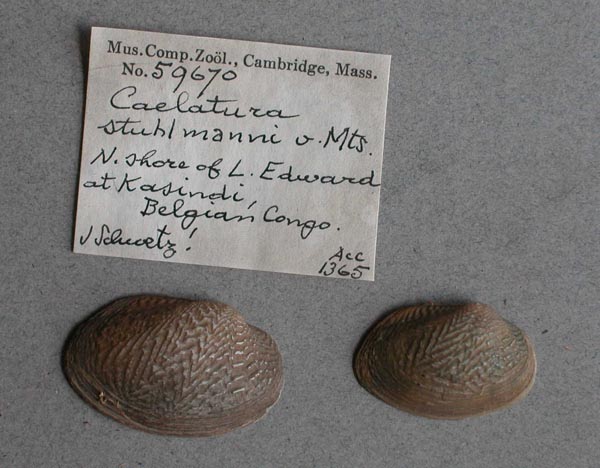 Mus.Comp.Zoöl., Cambridge, Mass.
No. 59670
Caelatura
stuhlmanni v. Mts.
N. shore of L. Edward
at Kasindi,
Belgian Congo.
J Schwetz!
Acc
1365